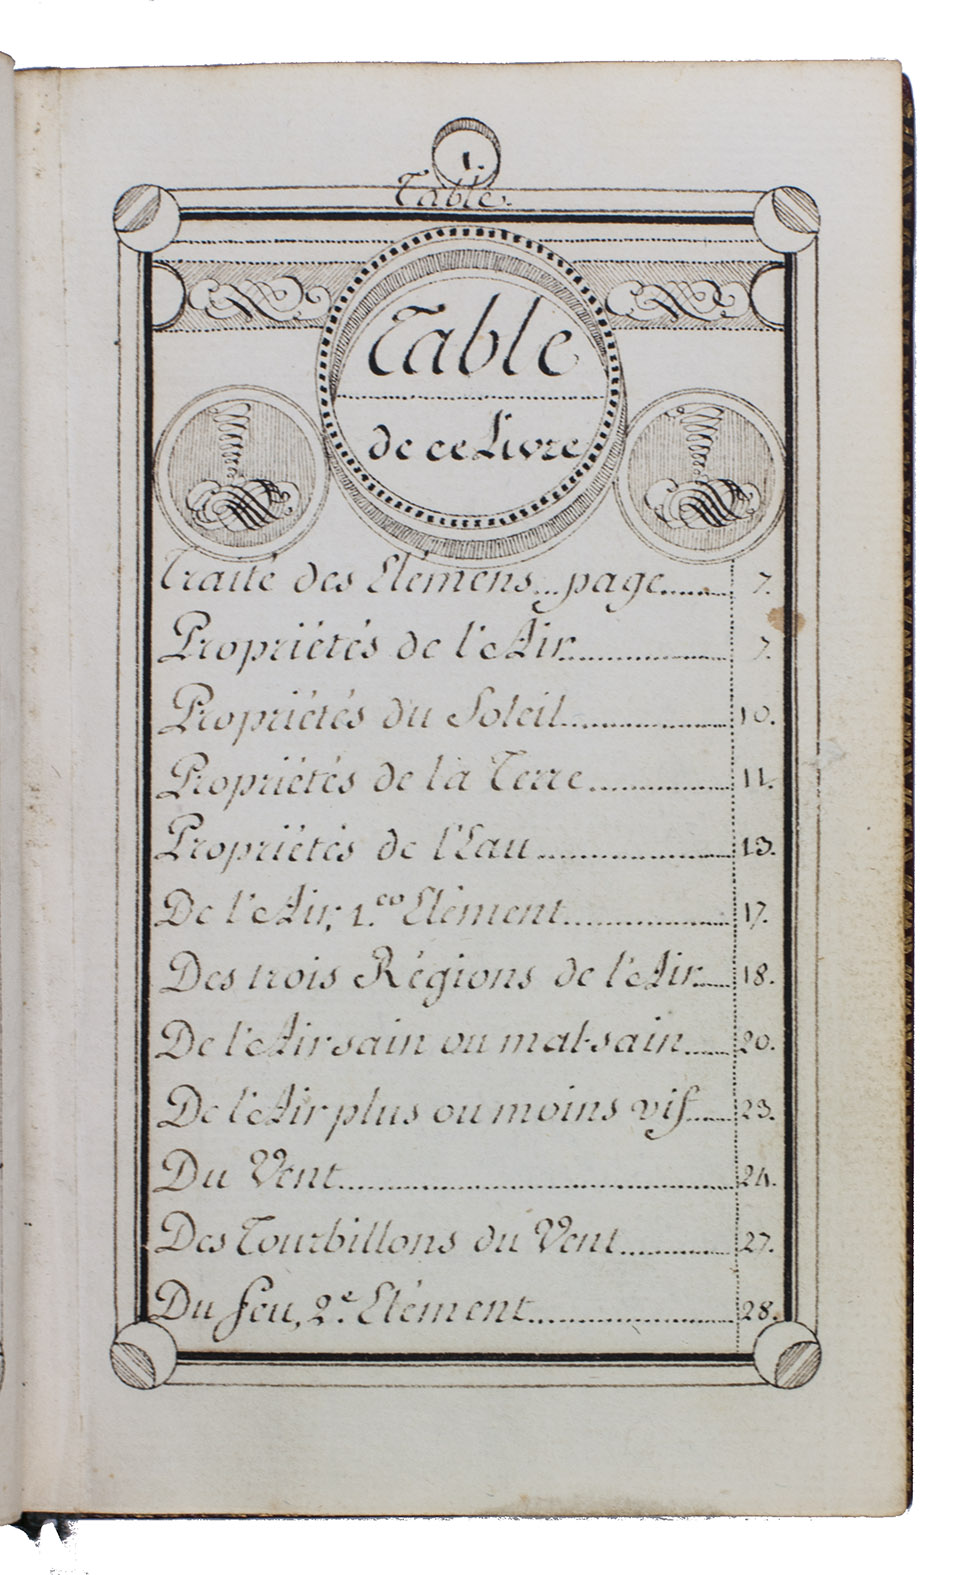 1.
Table.
Table
de ce Livre
Traité des Elémens...page....... 7.
Propriétés de l'Air................ 7.
Propriétés du Soleil................ 10.
Propriétés de la Terre............... 11.
Propriétés de l'Eau.................... 13.
De l'Air, 1.er Elément................ 17.
Des trois Régions de l'Air..... 18.
De l'Air sain ou mal-sain...... 20.
De l'Air plus ou moins vif..... 23.
Du Vent.......................................... 24.
Des Tourbillons du Vent............ 27.
Du feu, 2.e Elément...................... 28.